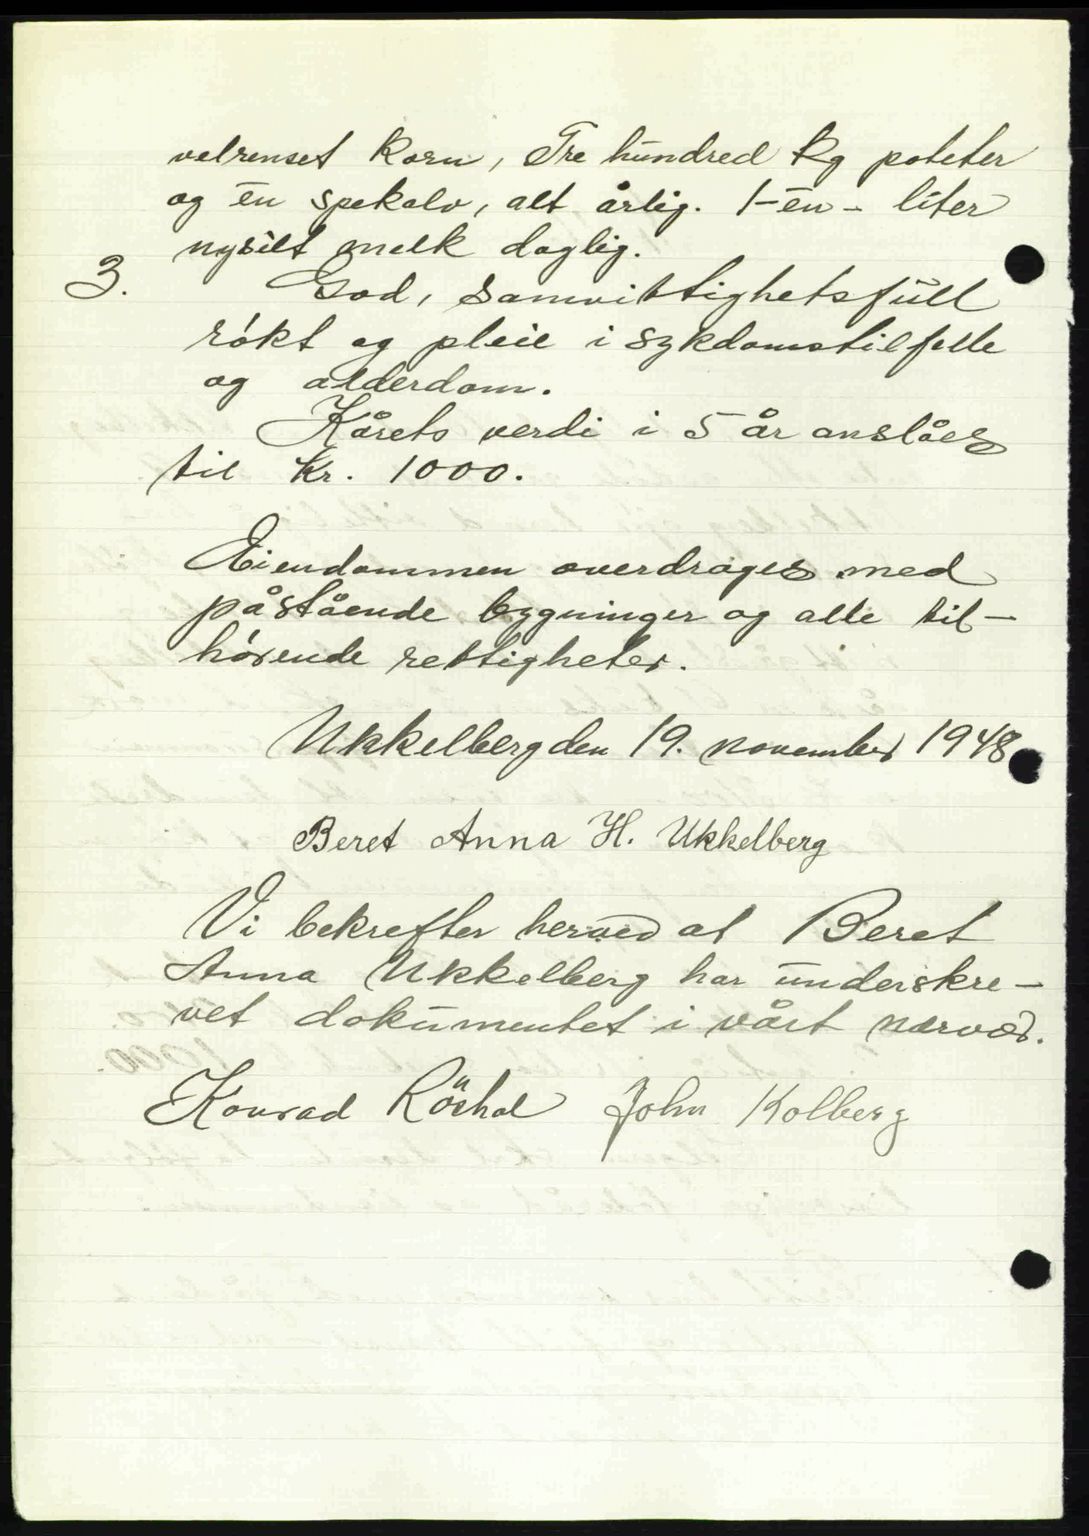 velrenset korn, Tre hundred kg poteter
og en spekalv, alt årlig. 1-en- liter
nysilt melk daglig.
3. God, samvittighetsfull
røkt og pleie i sykdomstilfelle
og alderdom.
Kårets verdi i 5 år anslåes
til kr. 1000.
Eiendommen overdrages med
påstående bygninger og alle til-
hørende rettigheter.
Ukkelberg den 19. november 1948
Beret Anna H. Ukkelberg
Vi bekrefter herved at Beret
Anna Ukkelberg har underskre-
vet dokumentet i vårt nærvær.
Konrad John Kolberg